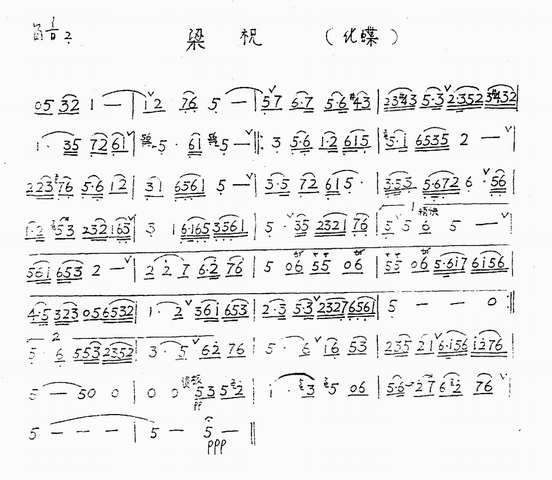 梁 祝 （化蝶）
05 32 1 — | 1 2 76 5 — | 57 6·7 5·6 #43 | 23#43 5·3 2·352 3#432 |
1· 35 72 61 | 5· 61 5 — ‖: 3 5·6 1·2 615 | 5·1 6535 2 — |
223 76 5·6 12 | 31 6561 5 — | 3·5 72 61 5· | 3·53 5·672 6· 56 |
1·2 53 232 163 | 5 1 6·165 3561 | 5· 35 2321 76 | 5 5 6 5 — |
561 653 2 — | 2 2 7 6·2 76 | 5 06 55 06 | 55 06 5·617 6156 |
4·5 323 056532 | 1· 2 361 653 | 2·3 5·3 2327 6561 | 5 — — 0 :‖
5· 6 553 2352 | 3· 5 62 76 | 5· 6 16 53 | 235 21 6·156 1276 |
5 — 50 0 | 0 0 535 2 | 1· 3 5 06 | 5·6 27 62 76 |
5 — — — | 5 — 5 — ‖
ppp